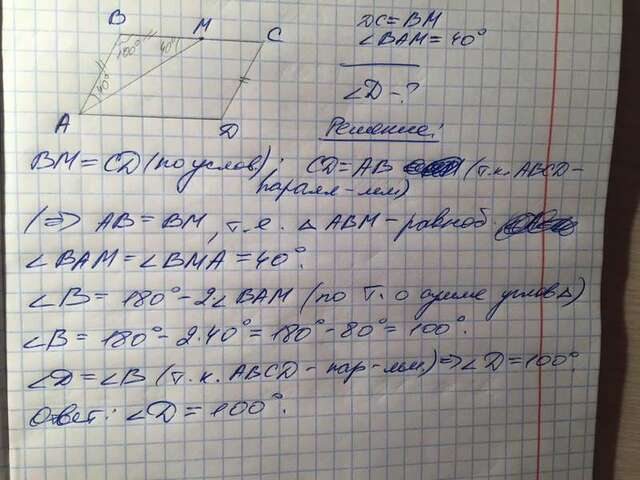 B M C
DC = BM
100° 40°
∠BAM = 40°
40°
∠D - ?
A D
Решение:
BM = CD (по услов); CD = AB (т.к. ABCD-
паралл-лм)
(=> AB = BM, т.е. △ ABM - равноб.
∠BAM = ∠BMA = 40°.
∠B = 180° - 2∠BAM (по т. о сумме углов △)
∠B = 180° - 2·40° = 180° - 80° = 100°.
∠D = ∠B (т.к. ABCD - пар-лм) => ∠D = 100°.
Ответ: ∠D = 100°.